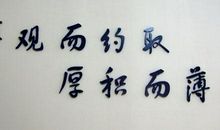 观而约取
厚积而薄